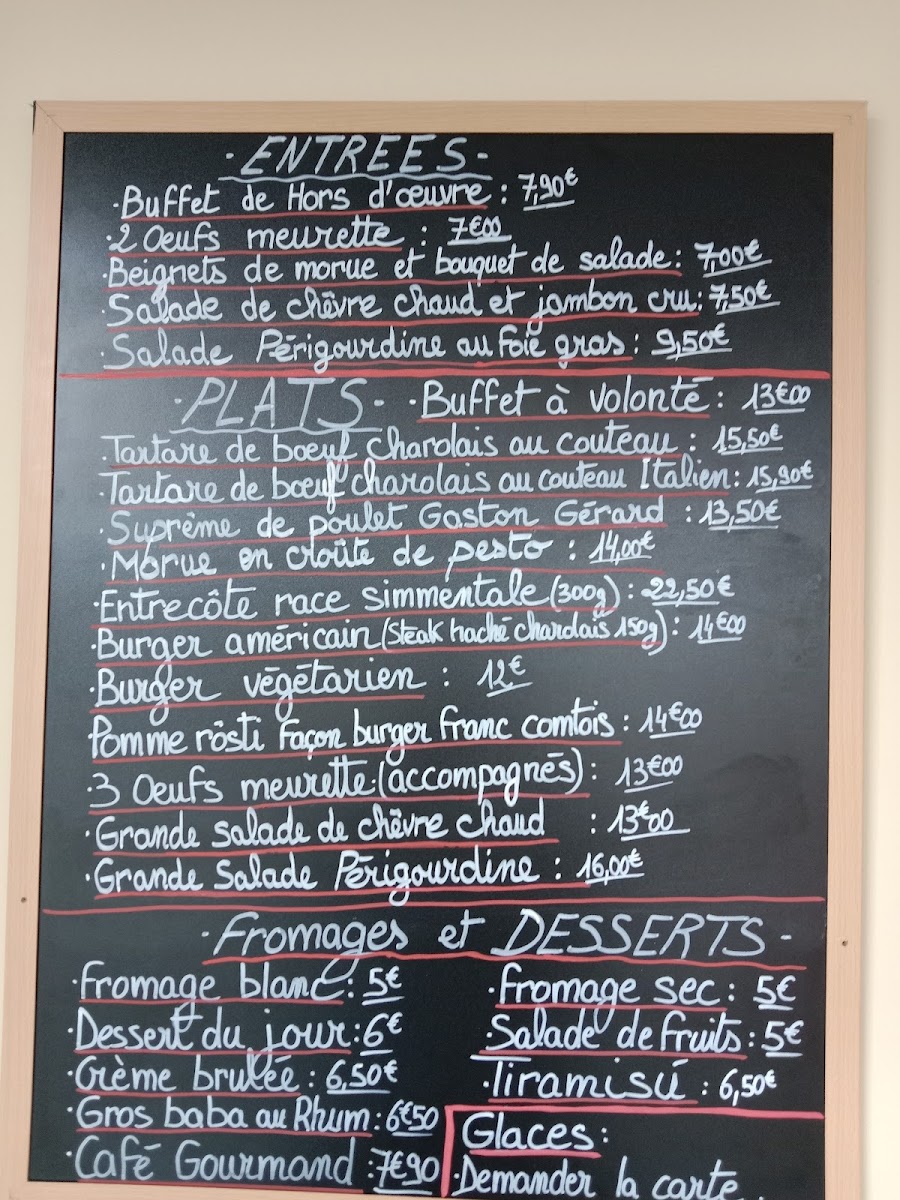 · ENTREES ·
· Buffet de Hors d'œuvre : 7,90€
· 2 Oeufs meurette : 7€00
· Beignets de morue et bouquet de salade : 7,00€
· Salade de chêvre chaud et jambon cru : 7,50€
· Salade Périgourdine au foie gras : 9,50€
· PLATS · · Buffet à volonté : 13€00
· Tartare de bœuf charolais au couteau : 15,50€
· Tartare de bœuf charolais au couteau Italien : 15,90€
· Suprême de poulet Gaston Gérard : 13,50€
· Morue en croûte de pesto : 14,00€
· Entrecôte race simmentale (300g) : 22,50€
· Burger américain (steak haché charolais 150g) : 14€00
· Burger végétarien : 12€
Pomme rôsti façon burger franc comtois : 14€00
· 3 Oeufs meurette (accompagnés) : 13€00
· Grande salade de chêvre chaud : 13€00
· Grande Salade Périgourdine : 16,00€
· Fromages et DESSERTS ·
· Fromage blanc : 5€
· Dessert du jour : 6€
· Crème brulée : 6,50€
· Gros baba au Rhum : 6€50
· Café Gourmand : 7€90
· Fromage sec : 5€
· Salade de fruits : 5€
· Tiramisú : 6,50€
Glaces :
· Demander la carte